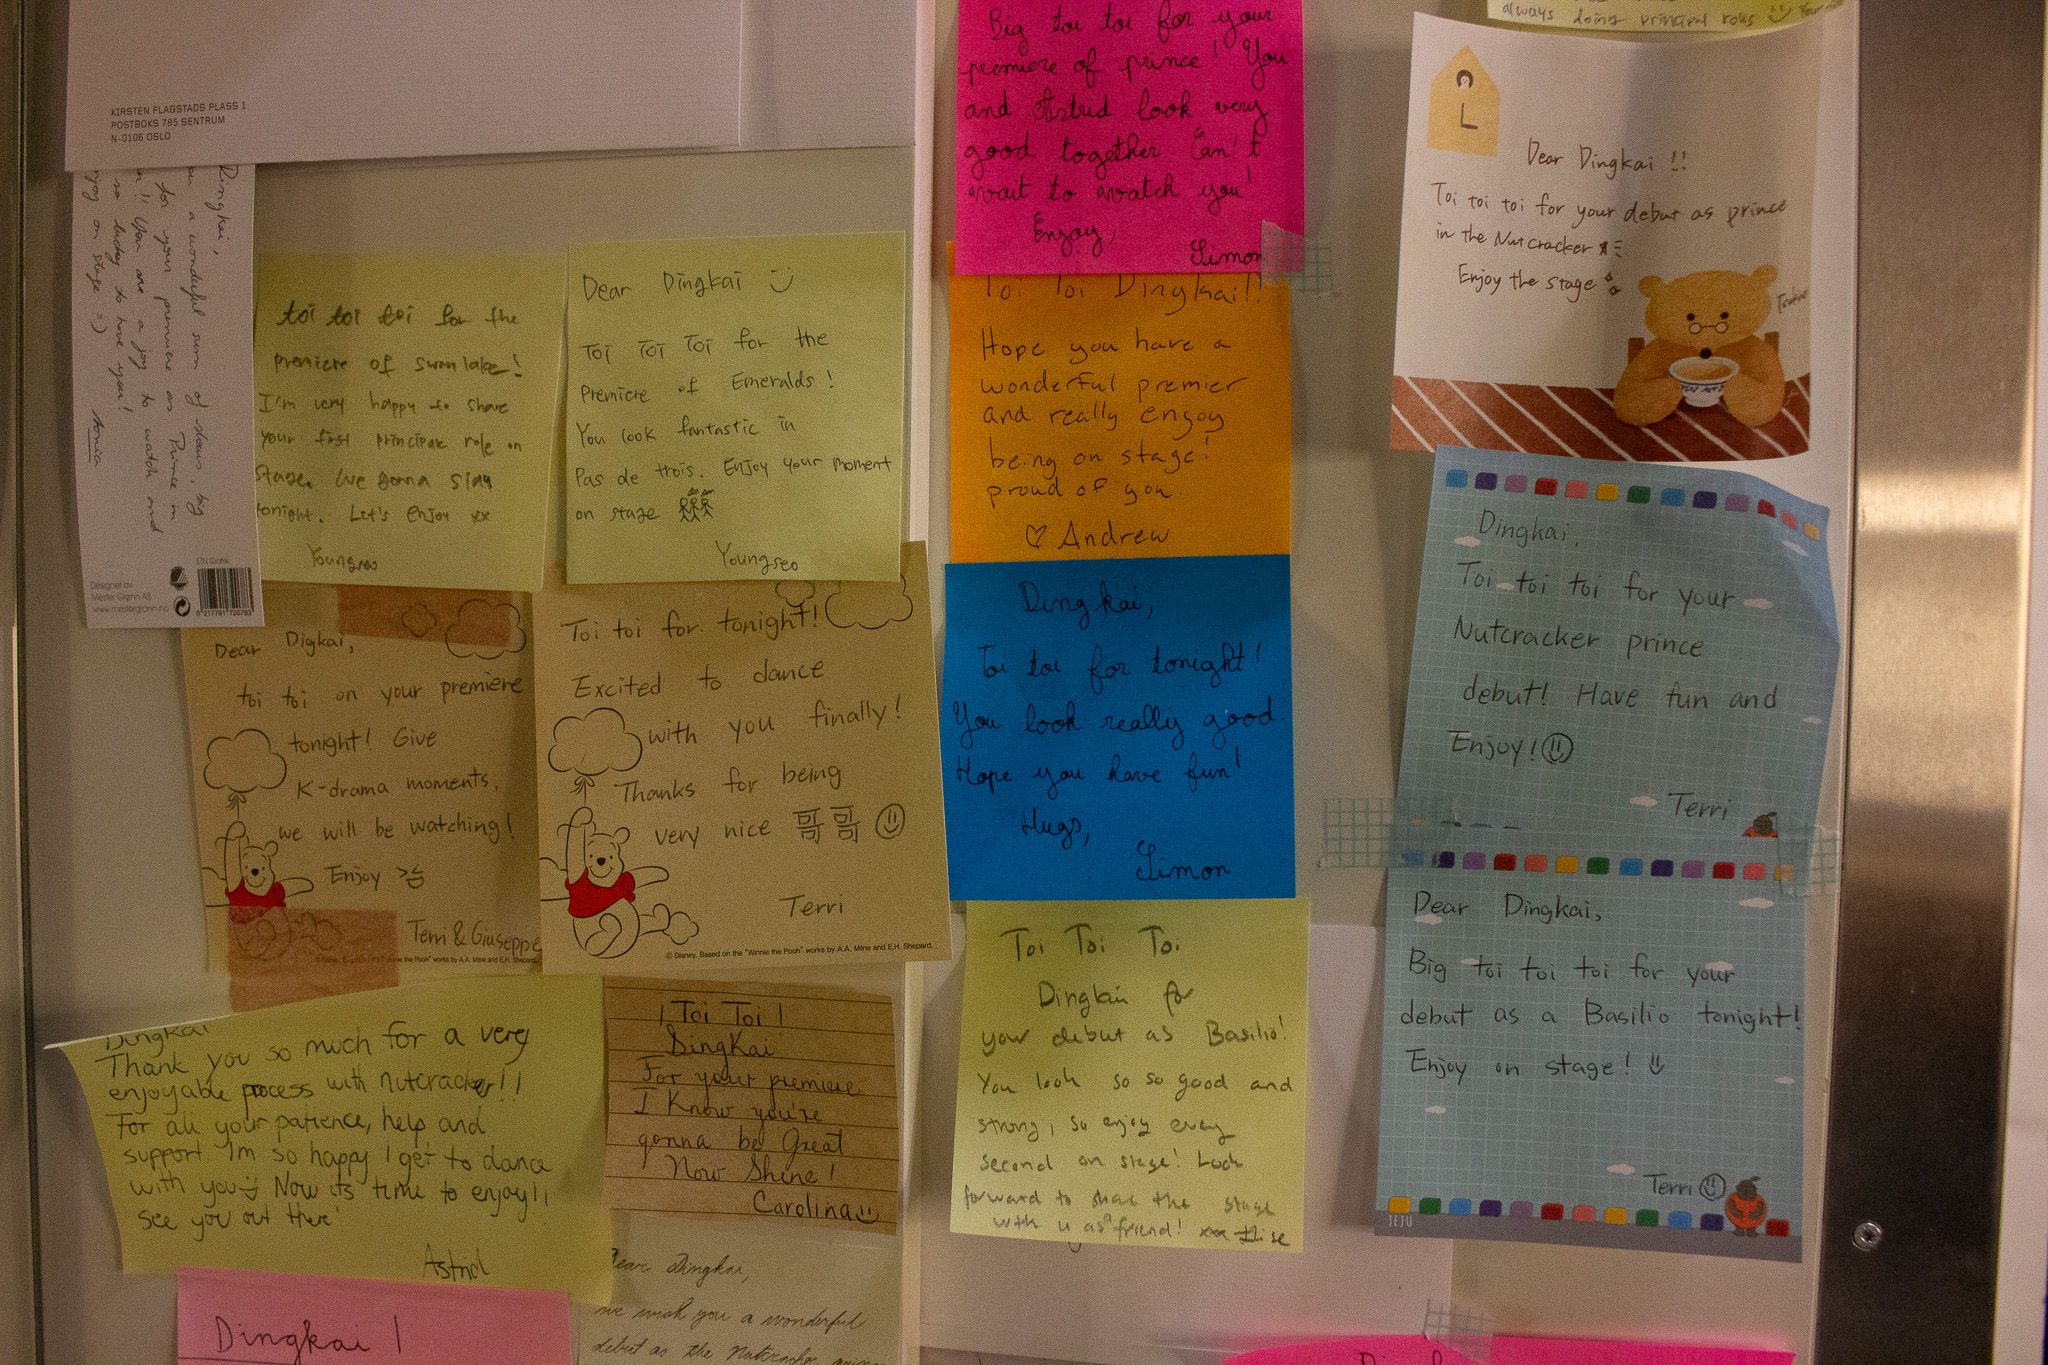 always doing principal roles
KIRSTEN FLAGSTADS PLASS 1
POSTBOKS 785 SENTRUM
N-0106 OSLO
Dingkai,
a wonderful sum of stars, big
for your premiere as Prince in
!! You are a joy to watch and
so lucky to have you!
njoy on stage =)
Sonia
Designet av
Mester Grønn AS
www.mestergronn.no
ETN Grafisk
6 217791 720783
toi toi toi for the
premiere of swan lake!
I'm very happy to share
your first principal role on
stage. We gonna slay
tonight. Let's enjoy xx
Youngseo
Dear Dingkai
Toi Toi Toi for the
Premiere of Emeralds!
You look fantastic in
Pas de trois. Enjoy your moment
on stage
Youngseo
Big toi toi for your
premiere of prince! You
and Astrid look very
good together. Can't
wait to watch you!
Enjoy,
Simon
Toi Toi Dingkai!!
Hope you have a
wonderful premier
and really enjoy
being on stage!
proud of you.
♡ Andrew
L
Dear Dingkai !!
Toi toi toi for your debut as prince
in the Nutcracker
Enjoy the stage
Dingkai,
Toi toi toi for your
Nutcracker prince
debut! Have fun and
Enjoy!
Terri
Dear Digkai,
toi toi on your premiere
tonight! Give
K-drama moments,
we will be watching!
Enjoy
Terri & Giuseppe
Toi toi for tonight!
Excited to dance
with you finally!
Thanks for being
very nice 哥哥
Terri
© Disney. Based on the "Winnie the Pooh" works by A.A. Milne and E.H. Shepard.
Dingkai,
Toi toi for tonight!
You look really good.
Hope you have fun!
Hugs,
Simon
Dear Dingkai,
Big toi toi toi for your
debut as a Basilio tonight!
Enjoy on stage!
Terri
JEJU
Toi Toi Toi
Dingkai for
your debut as Basilio!
You look so so good and
strong, so enjoy every
second on stage! Look
forward to share the stage
with u as a friend! xxx Elise
Dingkai
Thank you so much for a very
enjoyable process with nutcracker!!
For all your patience, help and
support I'm so happy I get to dance
with you Now its time to enjoy!!
see you out there!
Astrid
¡Toi Toi!
DingKai
For your premiere
I Know you're
gonna be Great
Now Shine!
Carolina
Dingkai!
Dear Dingkai,
we wish you a wonderful
debut as the Nutcracker